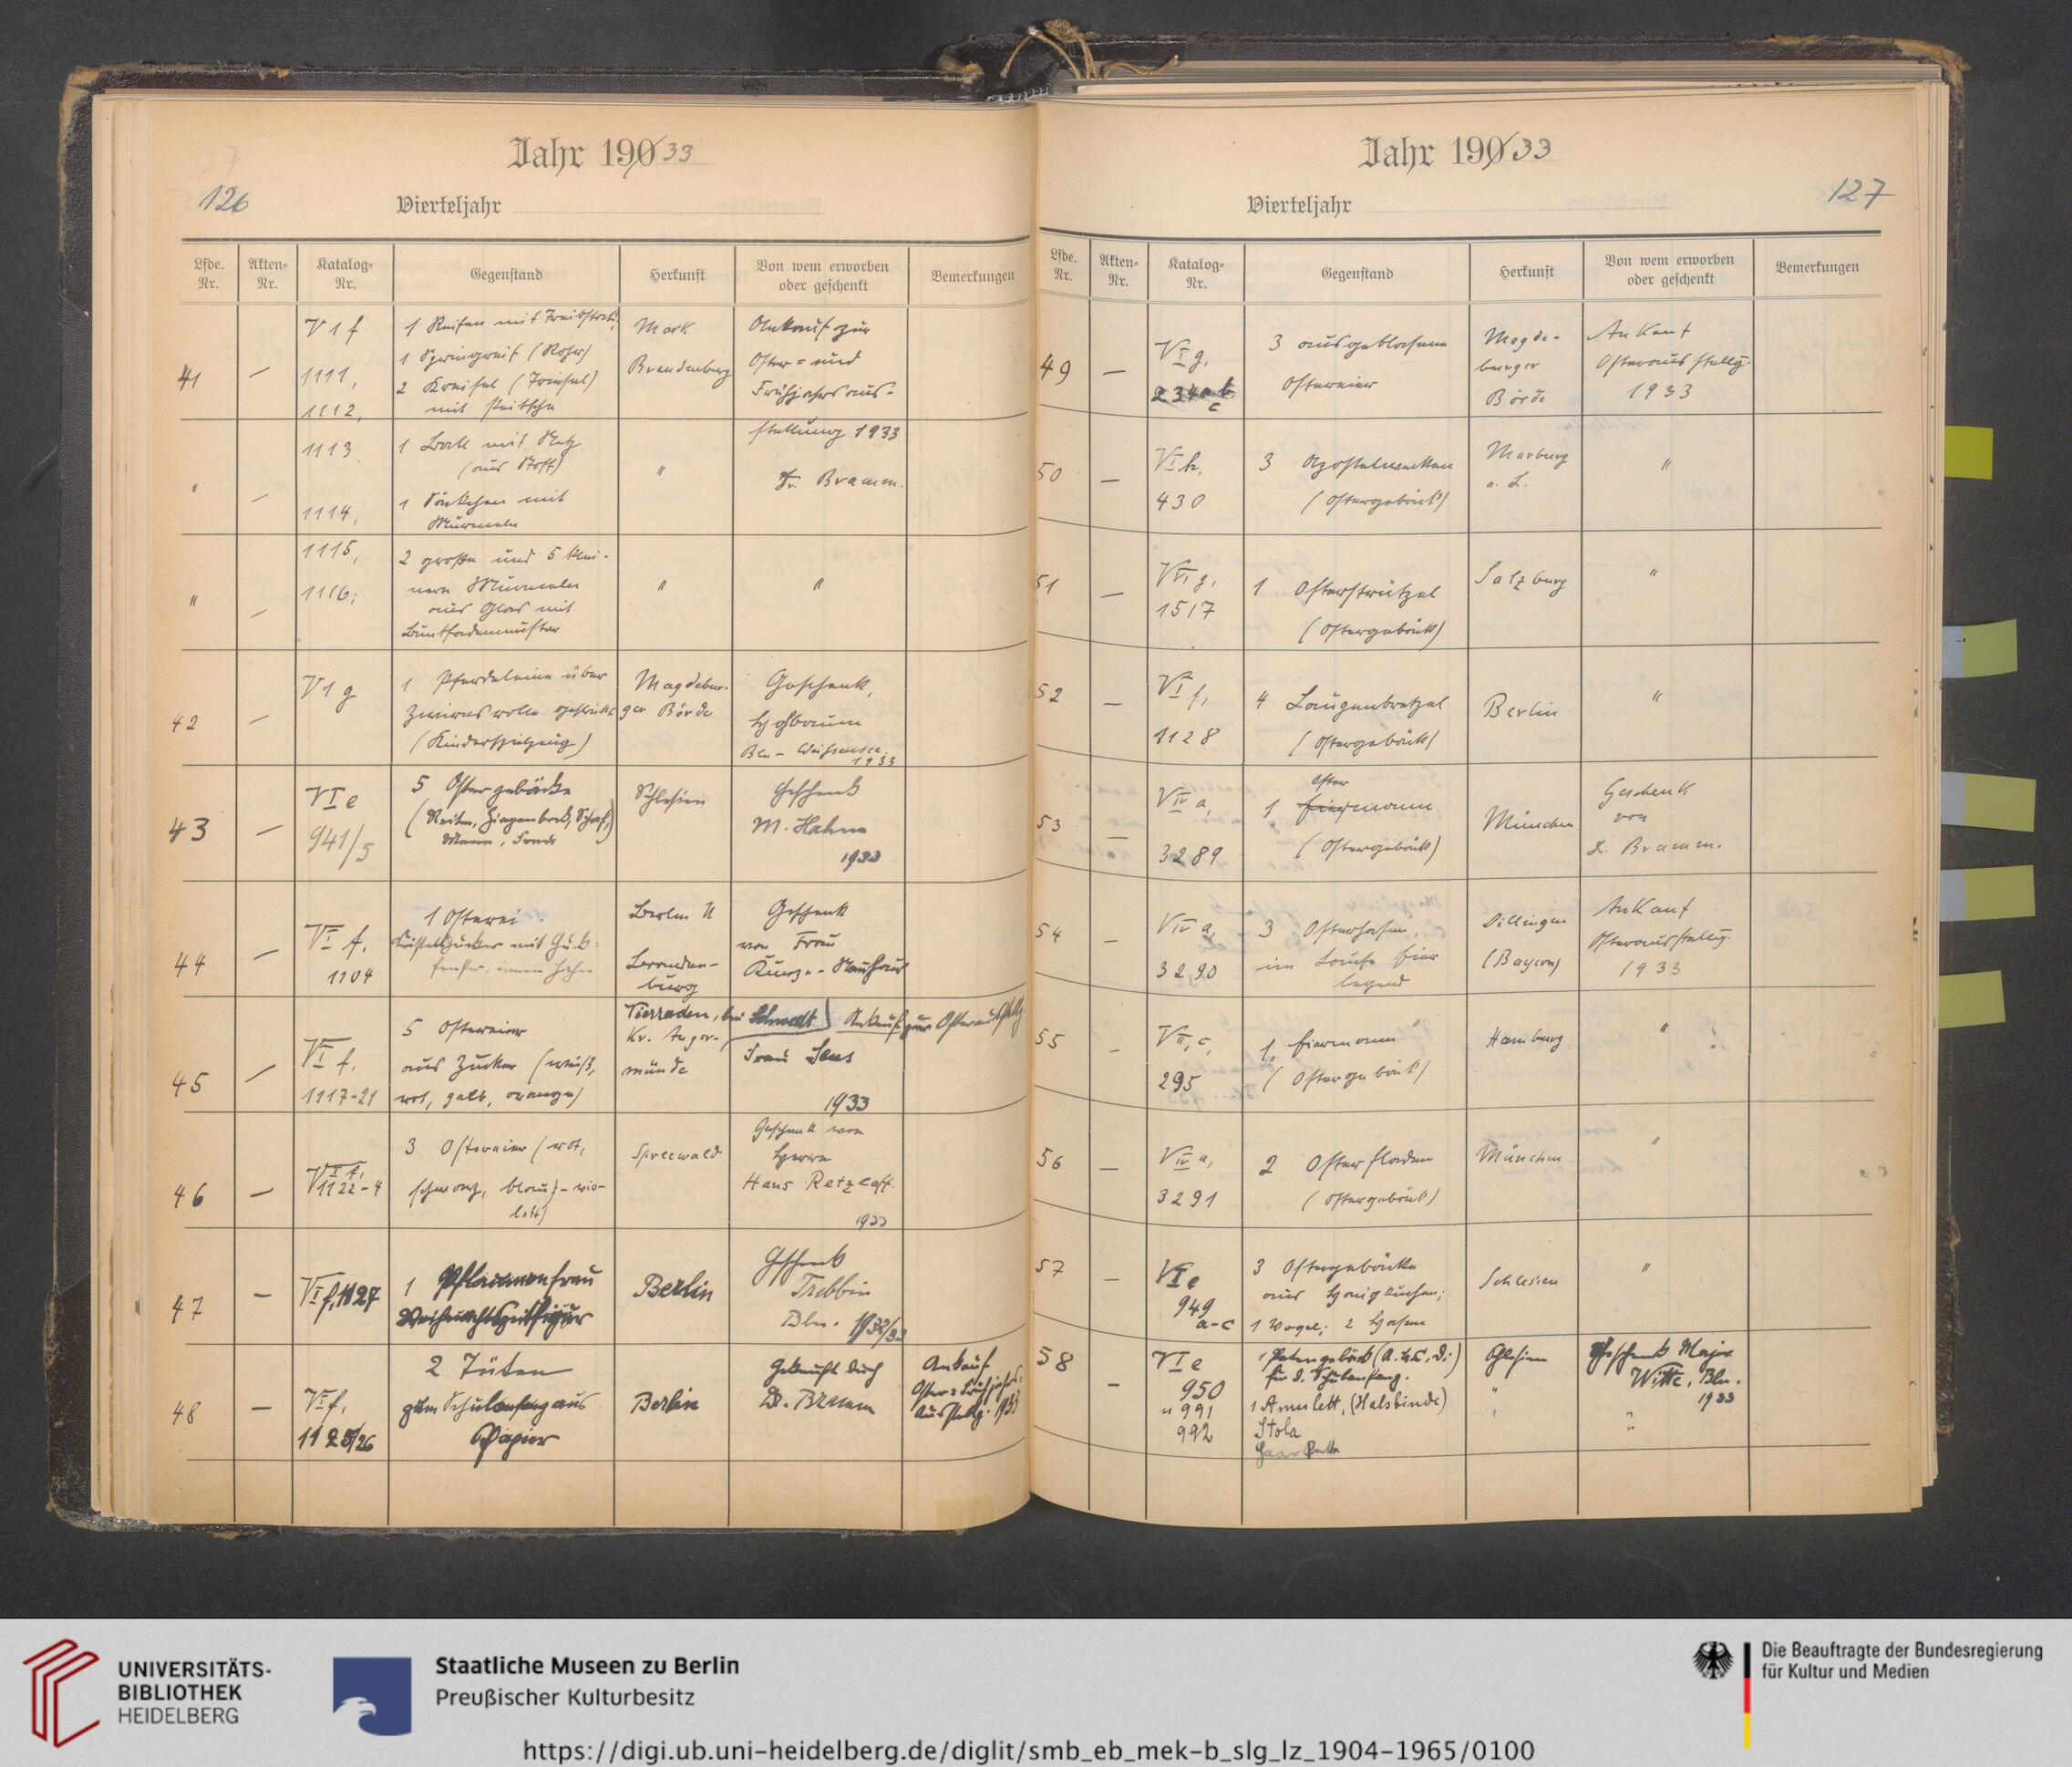 Jahr 1933
126
Vierteljahr
Lfde. Nr.
Akten-Nr.
Katalog-Nr.
Gegenstand
Herkunft
Von wem erworben oder geschenkt
Bemerkungen
41 — V 1 f 1111, 1112,
1 Reifen mit Treibstock,
1 Springreif (Rohr)
2 Kreisel (Triesel)
mit Peitsche
Mark
Brandenburg
Ankauf zur
Oster- und
Frühjahrsaus-
stellung 1933
Dr. Bramm.
" — 1113, 1114,
1 Ball mit Netz
(aus Stoff)
1 Säckchen mit
Murmeln
"
" — 1115, 1116;
2 große und 5 klei-
nere Murmeln
aus Glas mit
Buntfadenmuster
"
"
42 — V 1 g
1 Pferdeleine über
(Kinderspielzeug)
Magdebur-
ger Börde
Geschenk,
Bln-Weißensee
1933
43 — VI e 941/5
5 Ostergebäcke
(Reiter, Ziegenbock, Schaf,
Schlesien
Geschenk
M. Hahm
1933
44 — VI f. 1104
1 Osterei
Berlin N
Branden-
burg
Geschenk
von Frau
45 — VI f. 1117-21
5 Ostereier
aus Zucker (weiß,
rot, gelb, orange)
Vierraden, bei Schwedt
Kr. Anger-
münde
Ankauf zur Osterausstellg.
Frau
1933
46 — VI f, 1122-4
3 Ostereier (rot,
schwarz, blau) - vio-
lett)
Spreewald
Geschenk von
Herrn
Hans Retzlaff.
1933
47 — VI f, 1127
1 Pflaumenfrau
Berlin
Geschenk
Trebbin
Bln. 1932/33
48 — VI f. 1125/26
2 Tüten
zum Schulanfang aus
Papier
Berlin
Gekauft durch
Dr. Bramm
Ankauf
Oster- Frühjahrs-
Ausstellg. 1933
Jahr 1933
127
Vierteljahr
Lfde. Nr.
Akten-Nr.
Katalog-Nr.
Gegenstand
Herkunft
Von wem erworben oder geschenkt
Bemerkungen
49 — VI g, 234 a b c
3 ausgeblasene
Ostereier
Magde-
burger
Börde
Ankauf
Osterausstellg.
1933
50 — VI h, 430
3 Apostelwecken
(Ostergebäck)
Marburg
a. L.
"
51 — 1517
1 Osterstrützel
(Ostergebäck)
Salzburg
"
52 — VI f, 1128
4 Laugenbretzel
(Ostergebäck)
Berlin
"
53 — VIV a, 3289
Oster
1 Eiermann
(Ostergebäck)
München
Geschenk
von
Dr. Bramm.
54 — VIV a, 3290
3 Osterhasen,
im Laufe Eier
legend
Dillingen
(Bayern)
Ankauf
Osterausstellg.
1933
55 — VII, c, 295
1 Eiermann "
(Ostergebäck)
Hamburg
"
56 — VIV a, 3291
2 Osterfladen
(Ostergebäck)
München
"
57 — VI e 949 a-c
3 Ostergebäcke
aus Honigkuchen;
1 Vogel; 2 Hasen
Schlesien
"
58 — VI e 950
1 Patengebäck (A. b. C. D.)
für d. Schulanfang.
Schlesien
Geschenk Major
Witte, Bln.
1933
" 991
1 Amulett, (Halsbinde)
"
"
992
Stola
UNIVERSITÄTS-
BIBLIOTHEK
HEIDELBERG
Staatliche Museen zu Berlin
Preußischer Kulturbesitz
Die Beauftragte der Bundesregierung
für Kultur und Medien
https://digi.ub.uni-heidelberg.de/diglit/smb_eb_mek-b_slg_lz_1904-1965/0100